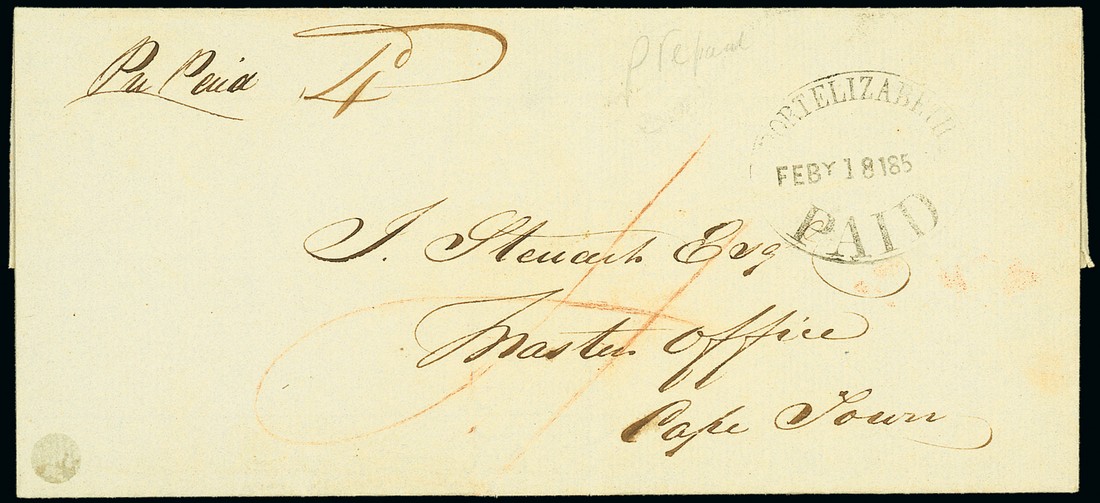 Pre Paid 4d
Prepaid
PORT ELIZABETH
FEBY 18 185
PAID
J. Steuart Esq
Masters office
Cape Town